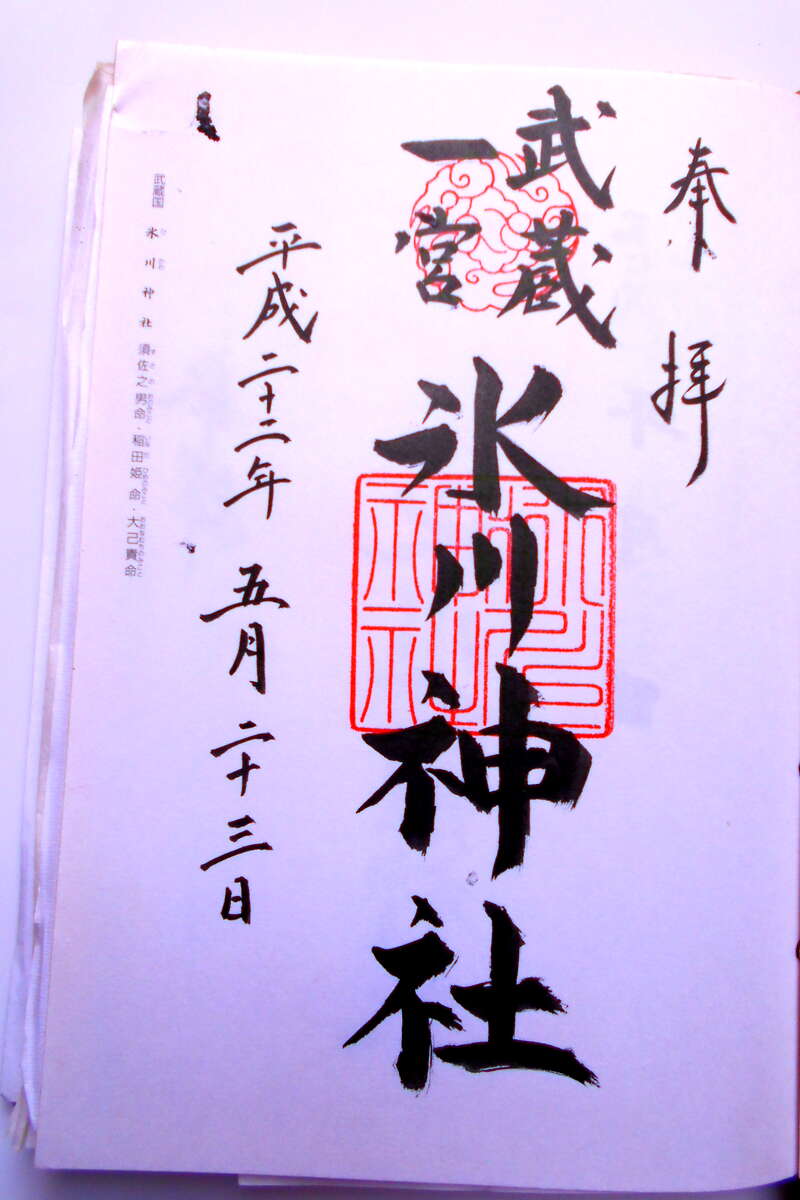 奉拝
武蔵
一宮
氷川神社
氷川神社
平成二十二年五月二十三日
武蔵国 氷川神社 須佐之男命・稲田姫命・大己貴命